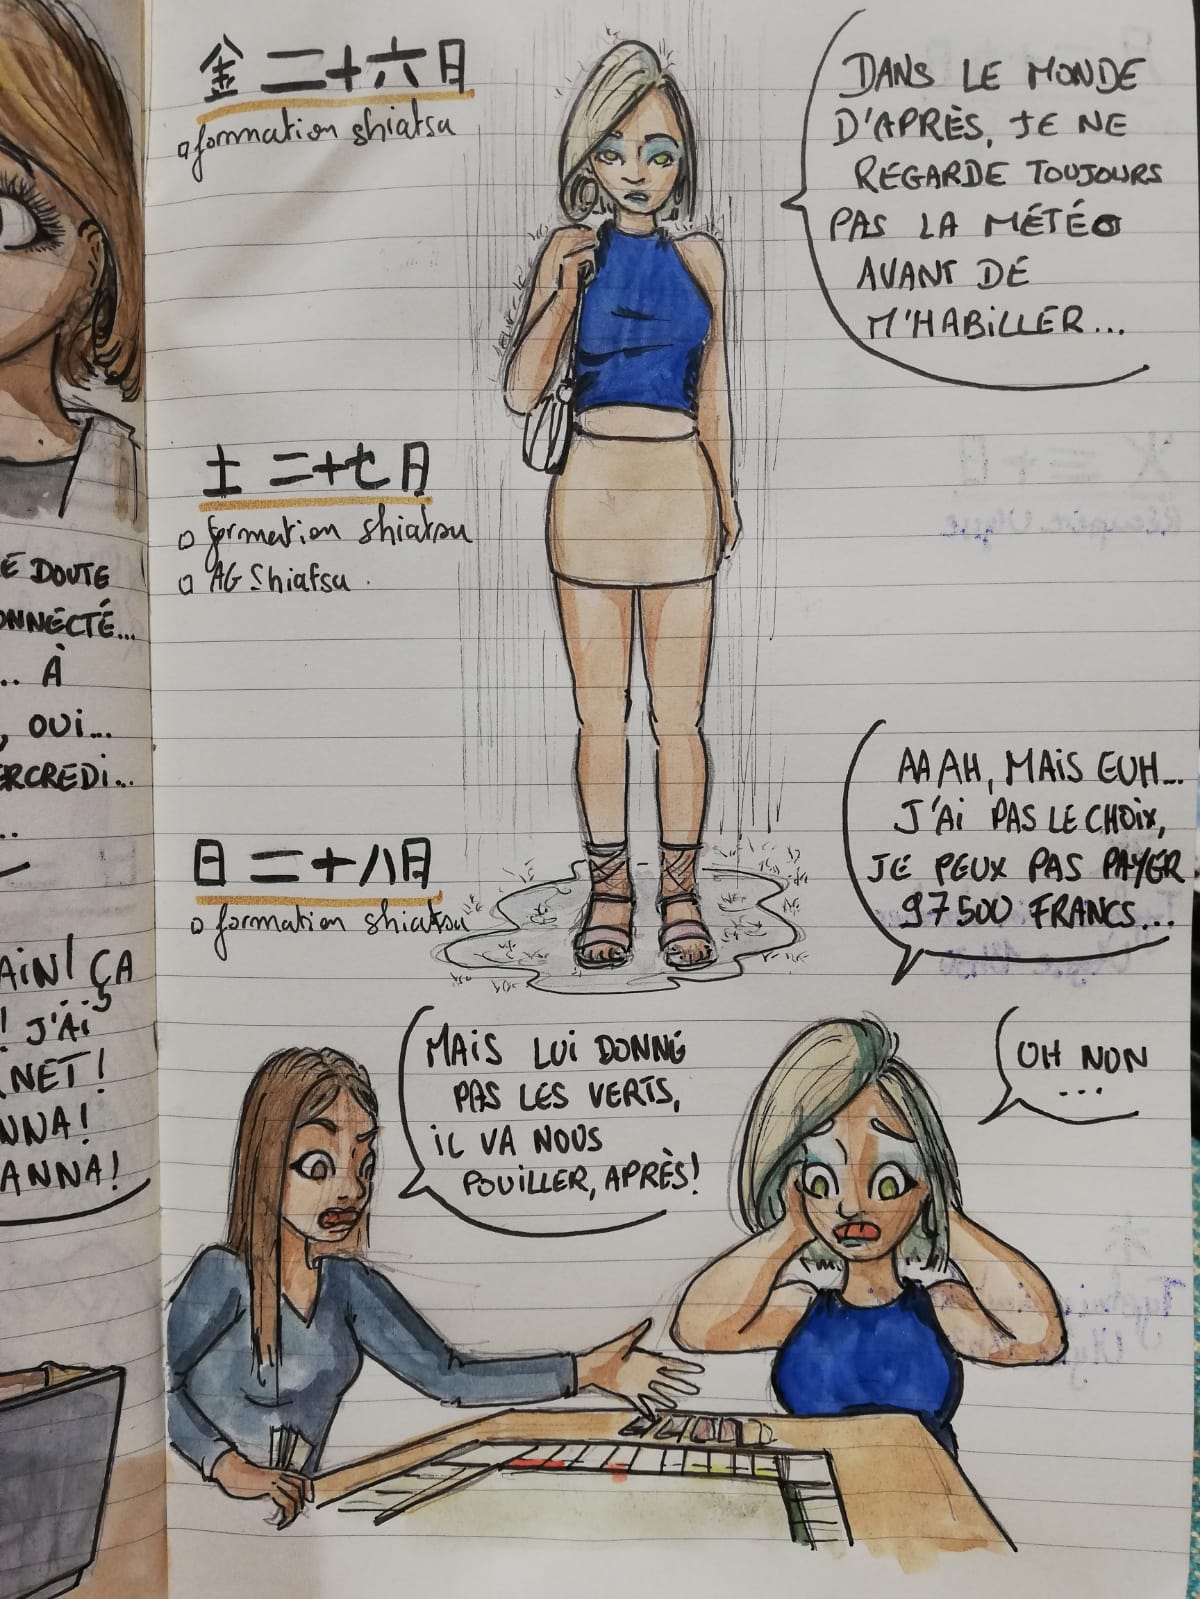 金 二十六日
formation shiatsu
DANS LE MONDE
D'APRÈS, JE NE
REGARDE TOUJOURS
PAS LA MÉTÉO
AVANT DE
M'HABILLER...
土 二十七日
formation shiatsu
AG Shiatsu.
日 二十八日
formation shiatsu
AAAH, MAIS EUH...
J'AI PAS LE CHOIX,
JE PEUX PAS PAYER
97500 FRANCS...
MAIS LUI DONNE
PAS LES VERTS,
IL VA NOUS
POUILLER, APRÈS!
OH NON
...
E DOUTE
ONNECTÉ...
.. À
, OUI...
ERCREDI...
..
AIN! ÇA
! J'AI
NET!
NNA!
ANNA!